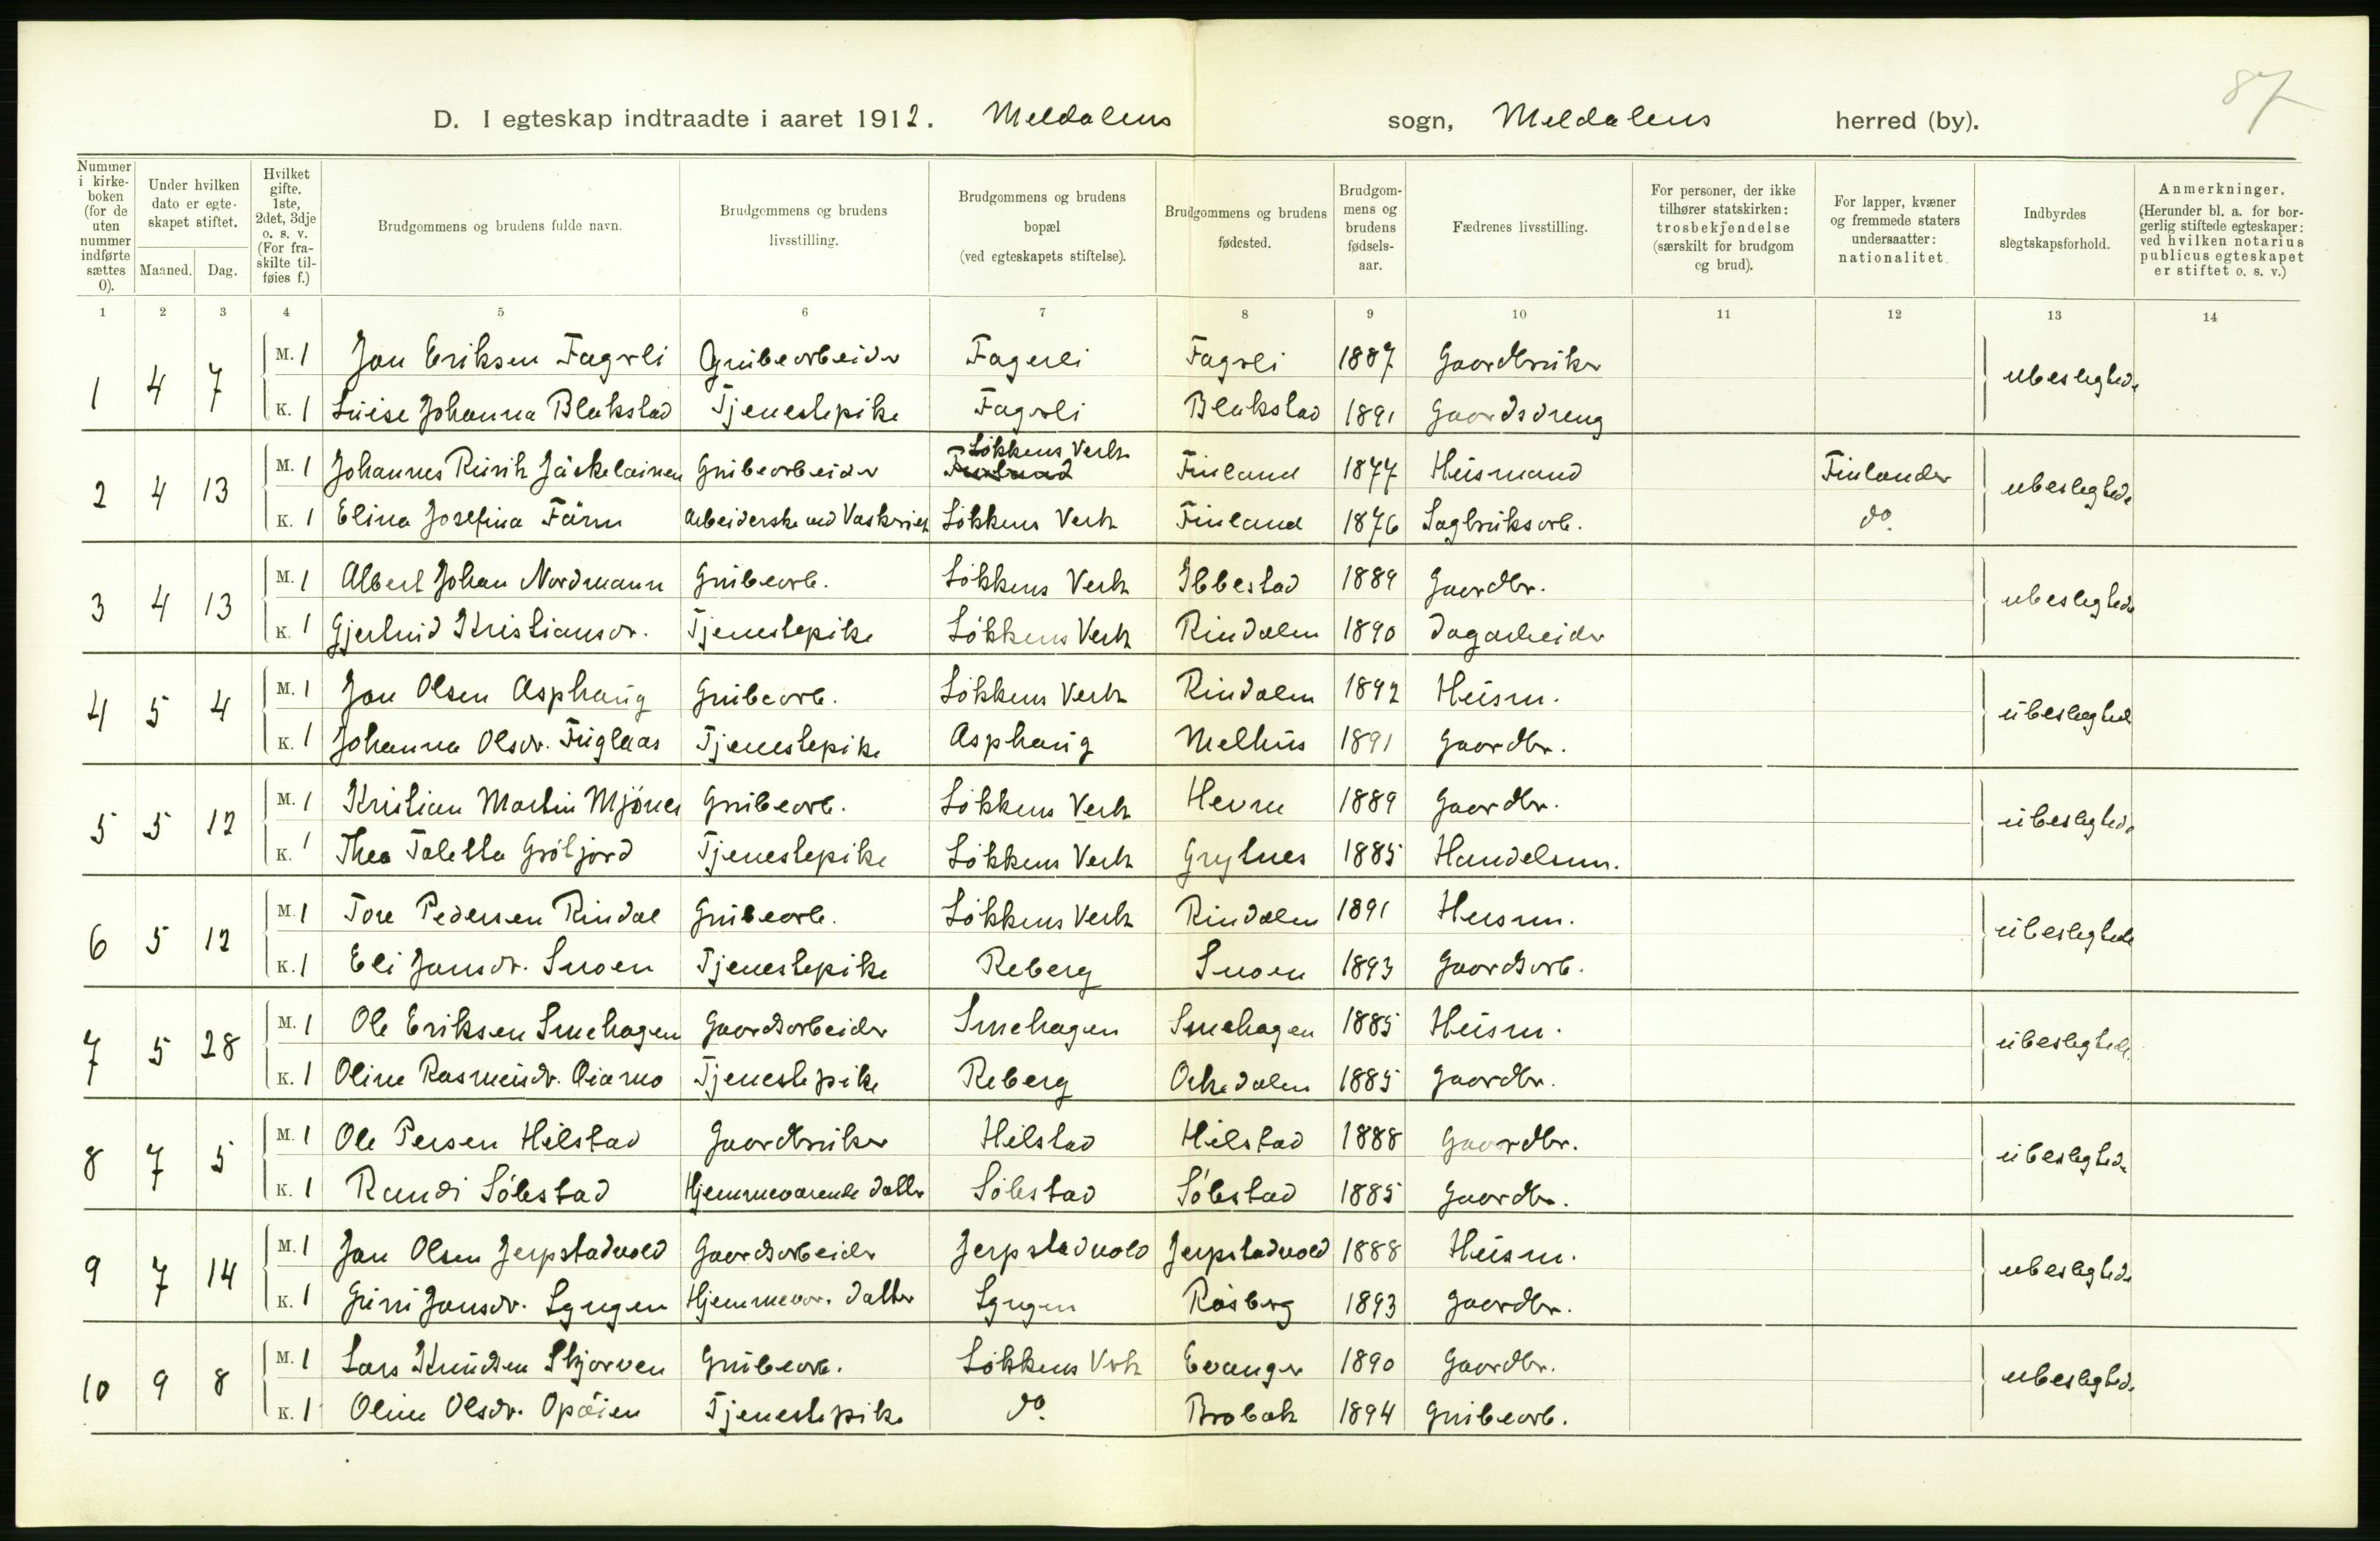 87
D. I egteskap indtraadte i aaret 1912. Meldalens sogn, Meldalens herred (by).
Nummer i kirkeboken (for de uten nummer indførte sættes 0).
Under hvilken dato er egteskapet stiftet.
Maaned. Dag.
Hvilket gifte. 1ste, 2det, 3dje o. s. v. (For fraskilte tilføies f.)
Brudgommens og brudens fulde navn.
Brudgommens og brudens livsstilling.
Brudgommens og brudens bopæl (ved egteskapets stiftelse).
Brudgommens og brudens fødested.
Brudgommens og brudens fødselsaar.
Fædrenes livsstilling.
For personer, der ikke tilhører statskirken: trosbekjendelse (særskilt for brudgom og brud).
For lapper, kvæner og fremmede staters undersaatter: nationalitet.
Indbyrdes slegtskapsforhold.
Anmerkninger. (Herunder bl. a. for borgerlig stiftede egteskaper: ved hvilken notarius publicus egteskapet er stiftet o. s. v.)
1 2 3 4 5 6 7 8 9 10 11 12 13 14
1 4 7 M. 1 Jon Eriksen Fagerli Grubearbeider Fagerli Fagerli 1887 Gaardbruker ubeslegtede
K. 1 Luise Johanna Blakstad Tjenestepike Fagerli Blakstad 1891 Gaardsdreng
Løkkens Verk
2 4 13 M. 1 Johannes Rurik Jäskelainen Grubearbeider Finland Finland 1877 Husmand Finlander ubeslegtede
K. 1 Elina Josefina Färm Arbeiderske ved Vaskeriet Løkkens Verk Finland 1876 Sagbruksarb. do.
3 4 13 M. 1 Albert Johan Nordmann Grubearb. Løkkens Verk Ibbestad 1889 Gaardbr. ubeslegtede
K. 1 Gjertrud Kristiansdr. Tjenestepike Løkkens Verk Rindalen 1890 Dagarbeider
4 5 4 M. 1 Jon Olsen Asphaug Grubearb. Løkkens Verk Rindalen 1892 Husm. ubeslegted
K. 1 Johanna Olsdr. Fuglaas Tjenestepike Asphaug Melhus 1891 Gaardbr.
5 5 12 M. 1 Kristian Martin Mjönes Grubearb. Løkkens Verk Hevne 1889 Gaardbr. ubeslegtede
K. 1 Thea Taletta Grötjord Tjenestepike Løkkens Verk Grytnes 1885 Handelsm.
6 5 12 M. 1 Tore Pedersen Rindal Grubearb. Løkkens Verk Rindalen 1891 Husm. ubeslegtede
K. 1 Eli Jonsdr. Snoen Tjenestepike Reberg Snoen 1893 Gaardsarb.
7 5 28 M. 1 Ole Eriksen Smehagen Gaardsarbeider Smehagen Smehagen 1885 Husm. ubeslegtede
K. 1 Oline Rasmusdr. Tjenestepike Reberg Orkedalen 1885 Gaardbr.
8 7 5 M. 1 Ole Persen Hilstad Gaardbruker Hilstad Hilstad 1888 Gaardbr. ubeslegtede
K. 1 Randi Sölistad Hjemmeværende datter Sölistad Sölistad 1885 Gaardbr.
9 7 14 M. 1 Jon Olsen Jerpstadvold Gaardsarbeider Jerpstadvold Jerpstadvold 1888 Husm. ubeslegtede
K. 1 Guri Jonsdr. Syrgen Hjemmevær. datter Syrgen Råsberg 1893 Gaardbr.
10 9 8 M. 1 Lars Knudsen Skjerven Grubearb. Løkkens Vrk Evanger 1890 Gaardbr. ubeslegtede
K. 1 Oline Olsdr. Opøien Tjenestepike do. Brobak 1894 Grubearb.